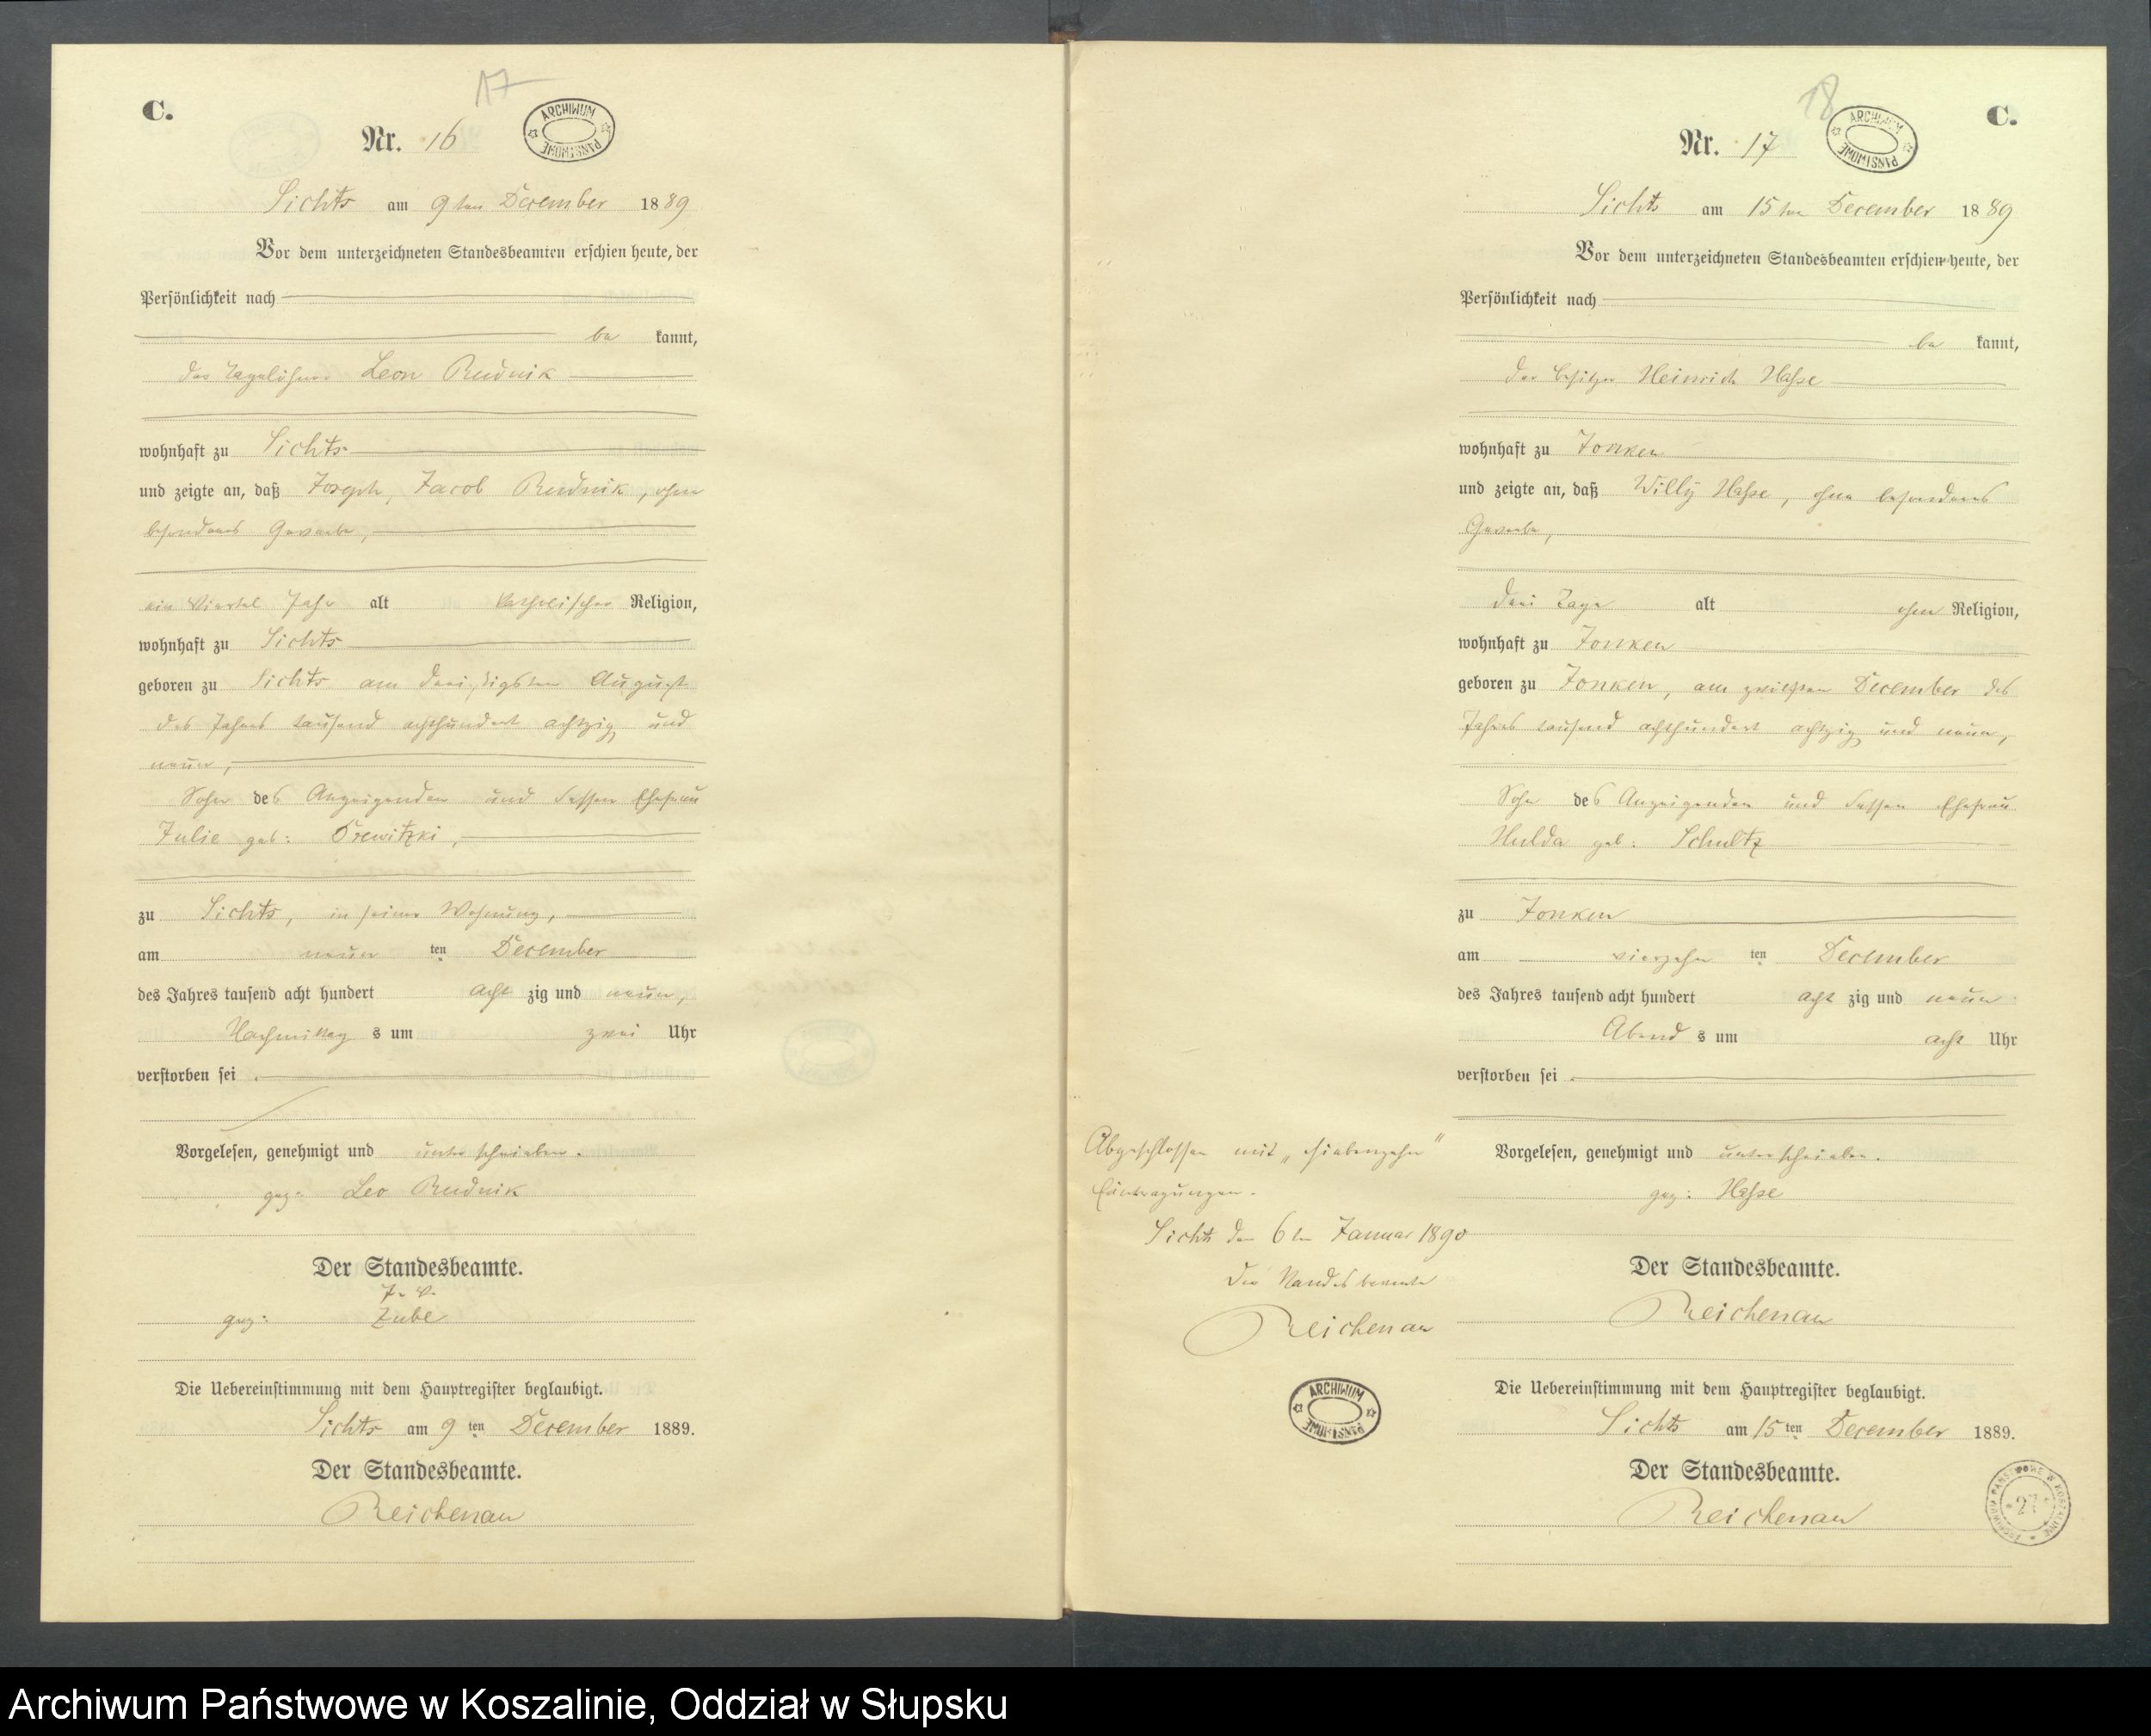 17
C.
Nr. 16
ARCHIWUM PAŃSTWOWE
Sichts am 9ten December 1889
Vor dem unterzeichneten Standesbeamten erschien heute, der
Persönlichkeit nach
be kannt,
der Tagelöhner Leon Rudnik
wohnhaft zu Sichts
und zeigte an, daß Joseph, Jacob Rudnik, ohne
besonderes Gewerbe,
ein Viertel Jahr alt katholischer Religion,
wohnhaft zu Sichts
geboren zu Sichts am dreißigsten August
des Jahres tausend achthundert achtzig und
neun,
Sohn des Anzeigenden und dessen Ehefrau
Julie geb: Orewitzki,
zu Sichts, in seiner Wohnung,
am neun ten December
des Jahres tausend acht hundert acht zig und neun,
Nachmittag s um zwei Uhr
verstorben sei .
Vorgelesen, genehmigt und unterschrieben.
gez: Leo Rudnik
Der Standesbeamte.
J. V.
gez: Zube
Die Uebereinstimmung mit dem Hauptregister beglaubigt.
Sichts am 9 ten December 1889.
Der Standesbeamte.
Reichenau
18
C.
Nr. 17
ARCHIWUM PAŃSTWOWE
Sichts am 15ten December 1889
Vor dem unterzeichneten Standesbeamten erschien heute, der
Persönlichkeit nach
be kannt,
der Besitzer Heinrich Hasse
wohnhaft zu Jonken
und zeigte an, daß Willy Hasse, ohne besonderes
Gewerbe,
drei Tage alt ohne Religion,
wohnhaft zu Jonken
geboren zu Jonken, am zwölften December des
Jahres tausend achthundert achtzig und neun,
Sohn des Anzeigenden und dessen Ehefrau
Hulda geb: Schultz
zu Jonken
am vierzehn ten December
des Jahres tausend acht hundert acht zig und neun
Abend s um acht Uhr
verstorben sei .
Vorgelesen, genehmigt und unterschrieben.
gez: Hasse
Der Standesbeamte.
Reichenau
Die Uebereinstimmung mit dem Hauptregister beglaubigt.
Sichts am 15 ten December 1889.
Der Standesbeamte.
Reichenau
Abgeschlossen mit „siebenzehn"
Eintragungen.
Sichts den 6ten Januar 1890
Der Standesbeamte
Reichenau
ARCHIWUM PAŃSTWOWE
ARCHIWUM PAŃSTWOWE W KOSZALINIE
27
Archiwum Państwowe w Koszalinie, Oddział w Słupsku